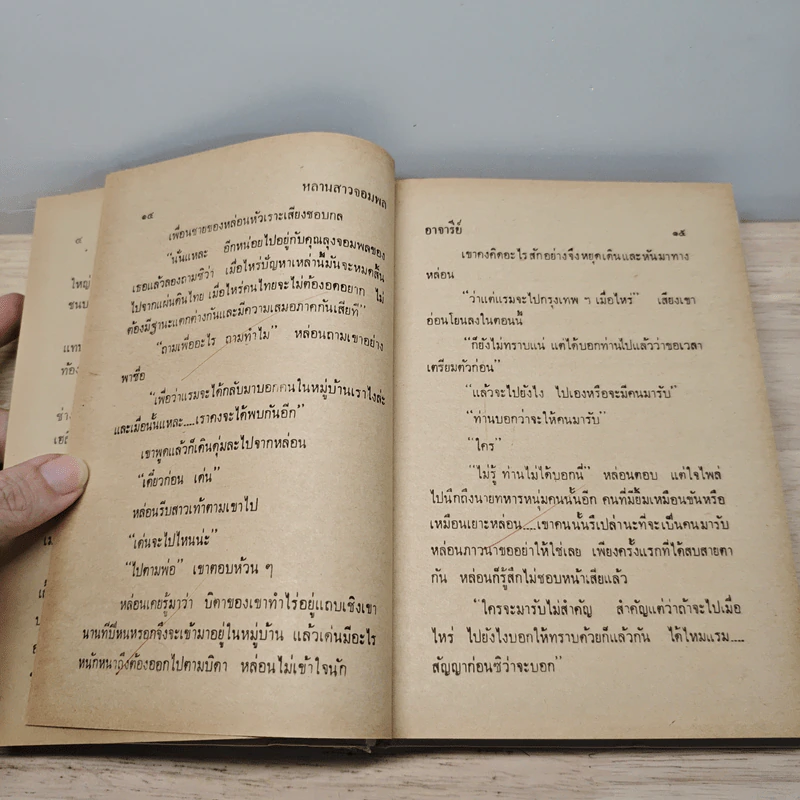 ใหญ่
ชนบ
แทร
ท้อง
ช่าง
เอธิ
๑๔
หลานสาวจอมพล
เพื่อนชายของหล่อนหัวเราะเสียงชอบกล
“นั่นแหละ อีกหน่อยไปอยู่กับคุณลุงจอมพลของ
เธอแล้วลองถามซิว่า เมื่อไหร่ปัญหาเหล่านี้มันจะหมดสิ้น
ไปจากแผ่นดินไทย เมื่อไหร่คนไทยจะไม่ต้องอดอยาก ไม่
ต้องมีฐานะแตกต่างกันและมีความเสมอภาคกันเสียที”
“ถามเพื่ออะไร ถามทำไม” หล่อนถามเขาอย่าง
พาซื่อ
“เพื่อว่าแรมจะได้กลับมาบอกคนในหมู่บ้านเราไงล่ะ
และเมื่อนั้นแหละ....เราคงจะได้พบกันอีก”
เขาพูดแล้วก็เดินดุ่มละไปจากหล่อน
“เดี๋ยวก่อน เด่น”
หล่อนรีบสาวเท้าตามเขาไป
“เด่นจะไปไหนน่ะ”
“ไปตามพ่อ” เขาตอบห้วน ๆ
หล่อนเคยรู้มาว่า บิดาของเขาทำไร่อยู่แถบเชิงเขา
นานทีปีหนหรอกจึงจะเข้ามาอยู่ในหมู่บ้าน แล้วเด่นมีอะไร
หนักหนาถึงต้องออกไปตามบิดา หล่อนไม่เข้าใจนัก
อาจารีย์
๑๕
เขาคงคิดอะไรสักอย่างจึงหยุดเดินและหันมาทาง
หล่อน
“ว่าแต่แรมจะไปกรุงเทพ ฯ เมื่อไหร่” เสียงเขา
อ่อนโยนลงในตอนนี้
“ก็ยังไม่ทราบแน่ แต่ได้บอกท่านไปแล้วว่าขอเวลา
เตรียมตัวก่อน”
“แล้วจะไปยังไง ไปเองหรือจะมีคนมารับ”
“ท่านบอกว่าจะให้คนมารับ”
“ใคร”
“ไม่รู้ ท่านไม่ได้บอกนี่” หล่อนตอบ แต่ใจไพล่
ไปนึกถึงนายทหารหนุ่มคนนั้นอีก คนที่มียิ้มเหมือนขันหรือ
เหมือนเยาะหล่อน....เขาคนนั้นรึเปล่านะที่จะเป็นคนมารับ
หล่อนภาวนาขออย่าให้ใช่เลย เพียงครั้งแรกที่ได้สบสายตา
กัน หล่อนก็รู้สึกไม่ชอบหน้าเสียแล้ว
“ใครจะมารับไม่สำคัญ สำคัญแต่ว่าถ้าจะไปเมื่อ
ไหร่ ไปยังไงบอกให้ทราบด้วยก็แล้วกัน ได้ไหมแรม....
สัญญาก่อนซิว่าจะบอก”